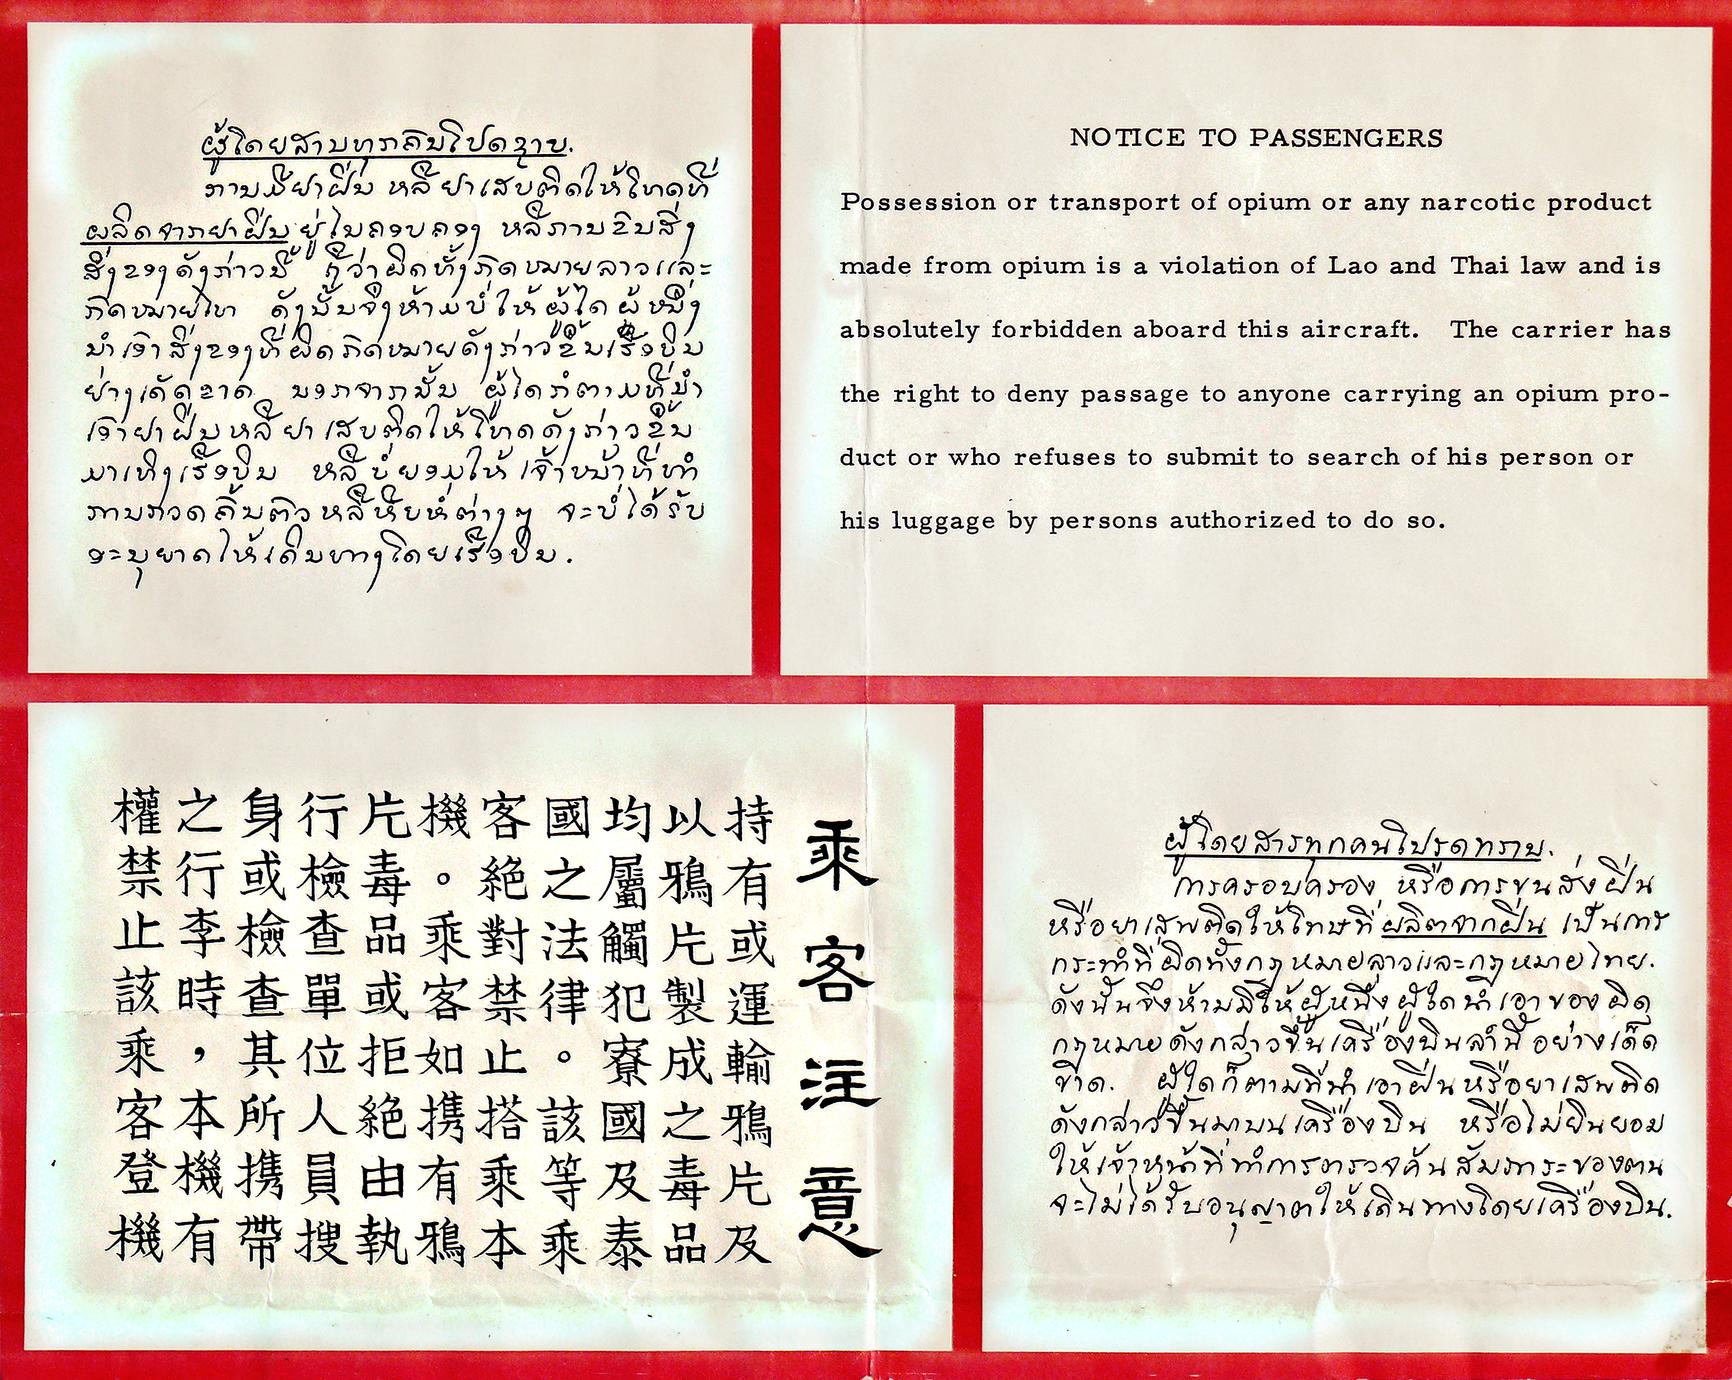 ຜູ້ໂດຍສານທຸກຄົນໂປດຊາບ.
ການມີຢາຝິ່ນ ຫລືຢາເສບຕິດໃຫ້ໂທດທີ່
ຜລິດຈາກຢາຝິ່ນ ຢູ່ໃນຄອບຄອງ ຫລືການຂົນສົ່ງ
ສິ່ງຂອງດັ່ງກ່າວນີ້ ກໍ່ວ່າຜິດທັງກົດໝາຍລາວແລະ
ກົດໝາຍໄທ ດັ່ງນັ້ນຈຶ່ງຫ້າມບໍ່ໃຫ້ຜູ້ໃດຜູ້ໜຶ່ງ
ນຳເອົາສິ່ງຂອງທີ່ຜິດກົດໝາຍດັ່ງກ່າວຂຶ້ນເຮືອບິນ
ຢ່າງເດັດຂາດ ນອກຈາກນັ້ນ ຜູ້ໃດກໍຕາມທີ່ນຳ
ເອົາຢາຝິ່ນຫລືຢາເສບຕິດໃຫ້ໂທດດັ່ງກ່າວຂຶ້ນ
ມາເທິງເຮືອບິນ ຫລືບໍ່ຍອມໃຫ້ເຈົ້າໜ້າທີ່ທຳ
ການກວດຄົ້ນຕົວ ຫລືຫີບຫໍ່ຕ່າງໆ ຈະບໍ່ໄດ້ຮັບ
ອະນຸຍາດໃຫ້ເດີນທາງໂດຍເຮືອບິນ.
NOTICE TO PASSENGERS
Possession or transport of opium or any narcotic product
made from opium is a violation of Lao and Thai law and is
absolutely forbidden aboard this aircraft. The carrier has
the right to deny passage to anyone carrying an opium pro-
duct or who refuses to submit to search of his person or
his luggage by persons authorized to do so.
乘客注意
持有或運輸鴉片及
以鴉片製成之毒品
均屬觸犯寮國及泰
國之法律。該等乘
客絕對禁止搭乘本
機。乘客如携有鴉
片毒品或拒絕由執
行檢查單位人員搜
身或檢查其所携帶
之行李時，本機有
權禁止該乘客登機
ผู้โดยสารทุกคนโปรดทราบ.
การครอบครอง หรือการขนส่งฝิ่น
หรือยาเสพติดให้โทษที่ผลิตจากฝิ่น เป็นการ
กระทำที่ผิดทั้งกฎหมายลาวและกฎหมายไทย.
ดังนั้นจึงห้ามมิให้ผู้หนึ่งผู้ใดนำเอาของผิด
กฎหมายดังกล่าวขึ้นเครื่องบินลำนี้อย่างเด็ด
ขาด. ผู้ใดก็ตามที่นำเอาฝิ่นหรือยาเสพติด
ดังกล่าวขึ้นมาบนเครื่องบิน หรือไม่ยินยอม
ให้เจ้าหน้าที่ทำการตรวจค้นสัมภาระของตน
จะไม่ได้รับอนุญาตให้เดินทางโดยเครื่องบิน.